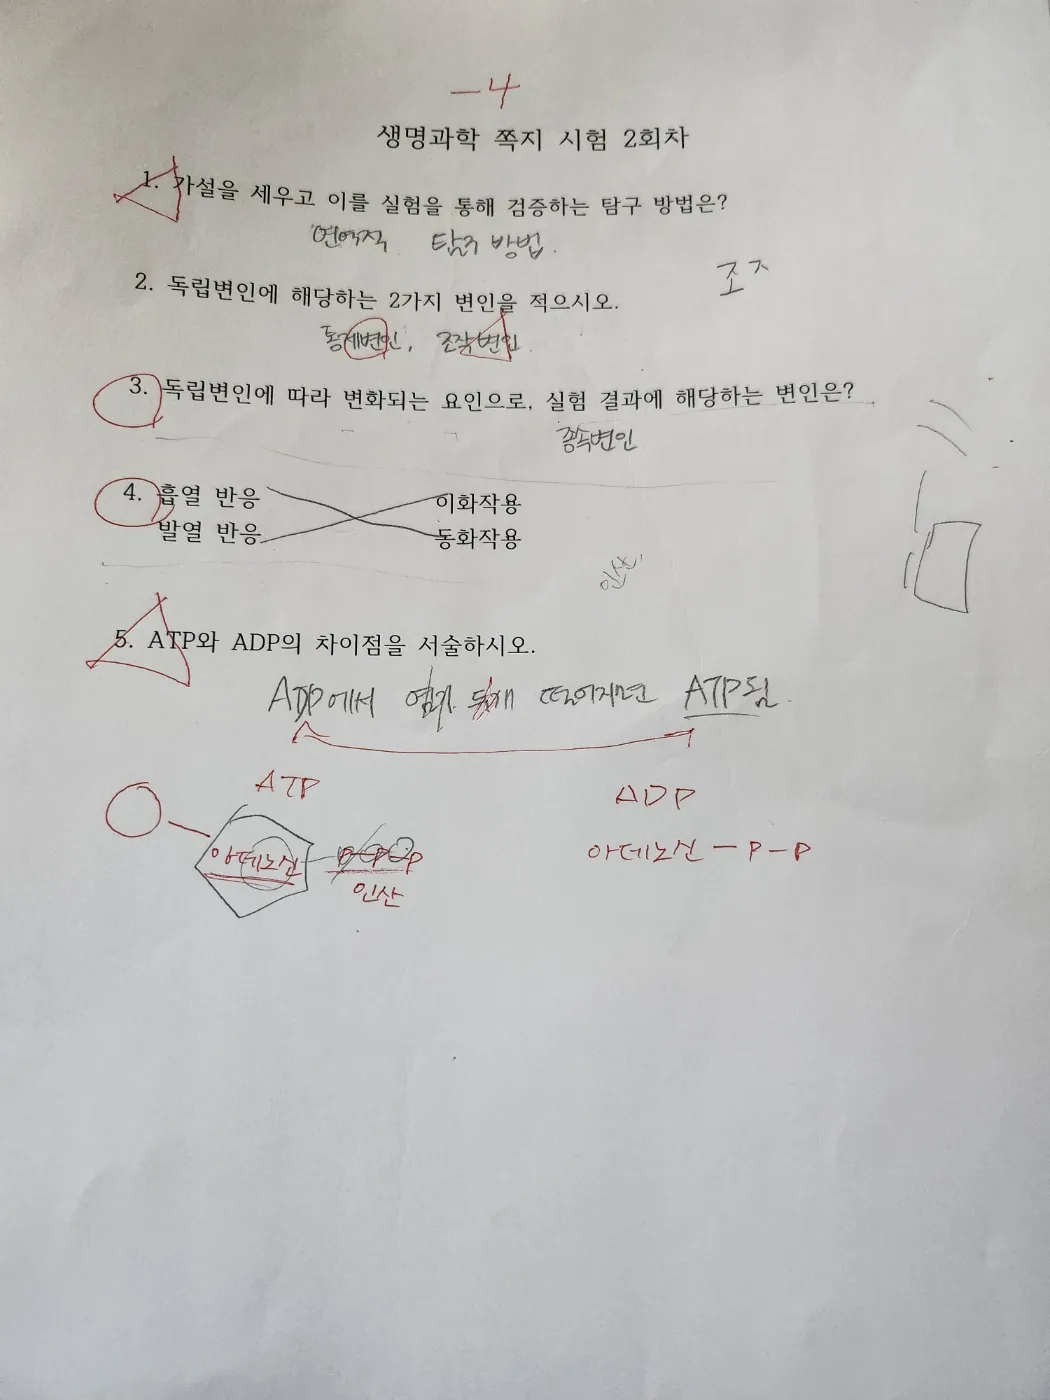 -4
생명과학 쪽지 시험 2회차
1. 가설을 세우고 이를 실험을 통해 검증하는 탐구 방법은?
연역적 탐구 방법.
조ㅈ
2. 독립변인에 해당하는 2가지 변인을 적으시오.
통제변인, 조작변인
3. 독립변인에 따라 변화되는 요인으로, 실험 결과에 해당하는 변인은?
종속변인
4. 흡열 반응 이화작용
발열 반응 동화작용
인산.
5. ATP와 ADP의 차이점을 서술하시오.
ADP에서 떨어지면 ATP됨.
ATP ADP
아데노신 - P-P-P 아데노신 - P - P
인산